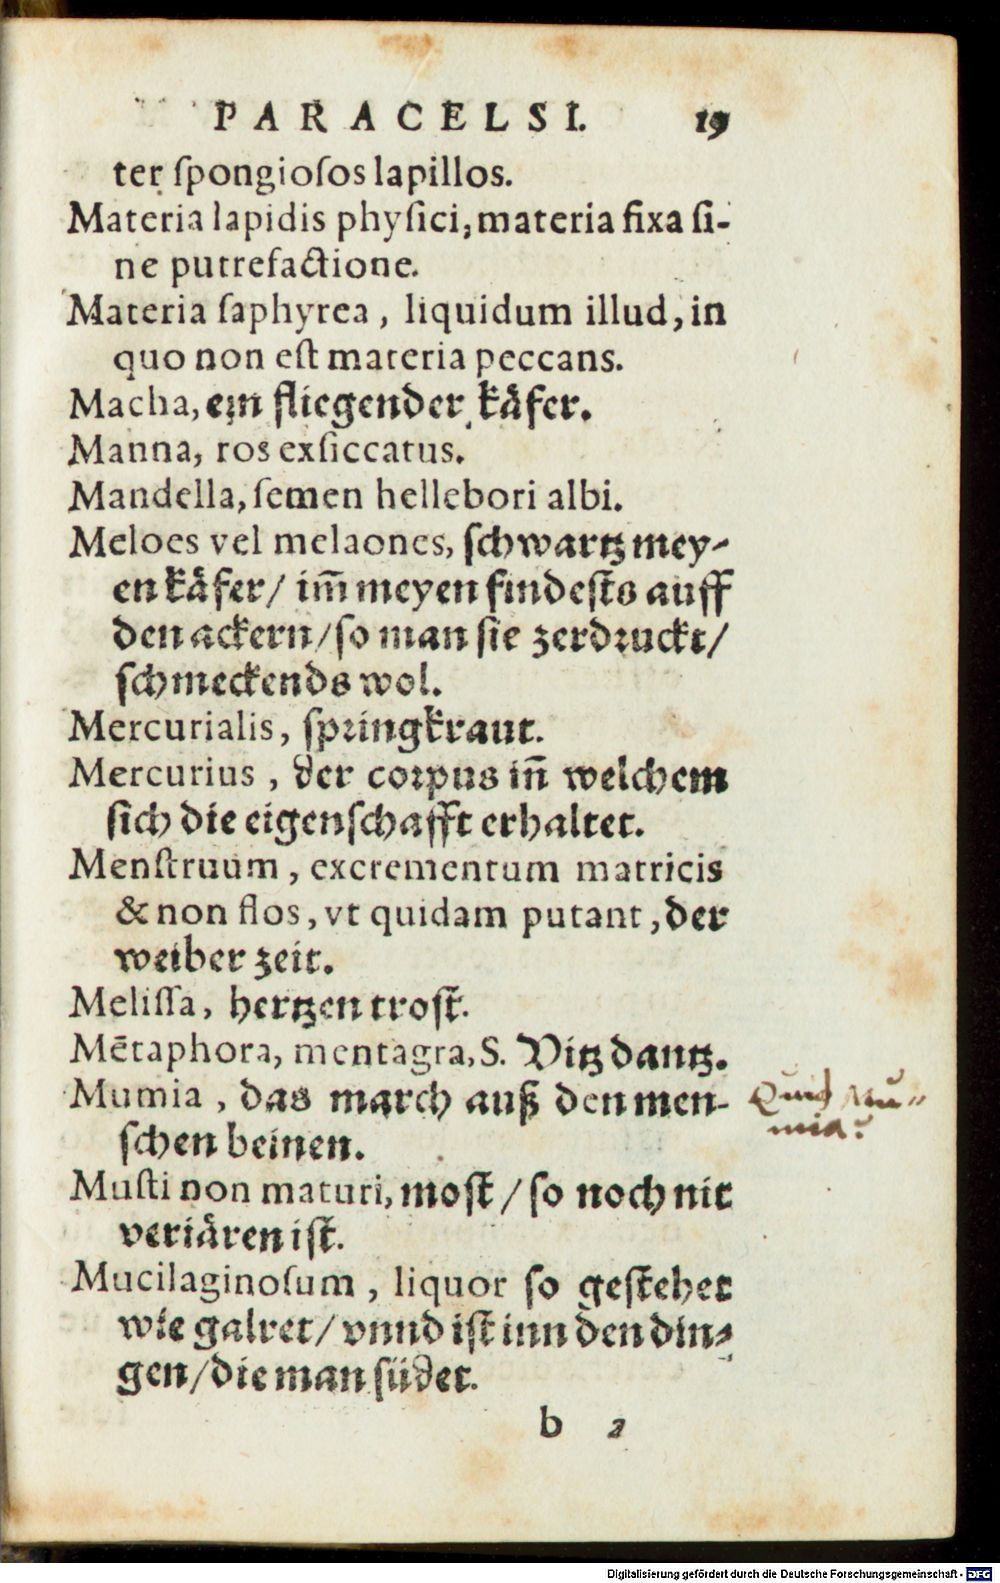 PARACELSI. 19
ter ſpongioſos lapillos.
Materia lapidis phyſici, materia fixa ſi-
ne putrefactione.
Materia ſaphyrea, liquidum illud, in
quo non eſt materia peccans.
Macha, ein fliegender kåfer.
Manna, ros exſiccatus.
Mandella, ſemen hellebori albi.
Meloes vel melaones, ſchwartz mey-
en kåfer/ im̃ meyen findeſts auff
den ackern/ ſo man ſie zerdruckt/
ſchmeckends wol.
Mercurialis, ſpringkraut.
Mercurius, der corpus iñ welchem
ſich die eigenſchafft erhaltet.
Menſtruum, excrementum matricis
& non flos, vt quidam putant, der
weiber zeit.
Meliſſa, hertzen troſt.
Mētaphora, mentagra, S. Vitz dantz.
Mumia, das march auß den men-
ſchen beinen.
Quid Mu-
mia?
Muſti non maturi, moſt/ ſo noch nit
veriåren iſt.
Mucilaginoſum, liquor ſo geſtehet
wie galret/ vnnd iſt inn den din-
gen/ die man ſüdet.
b 2
Digitalisierung gefördert durch die Deutsche Forschungsgemeinschaft - DFG